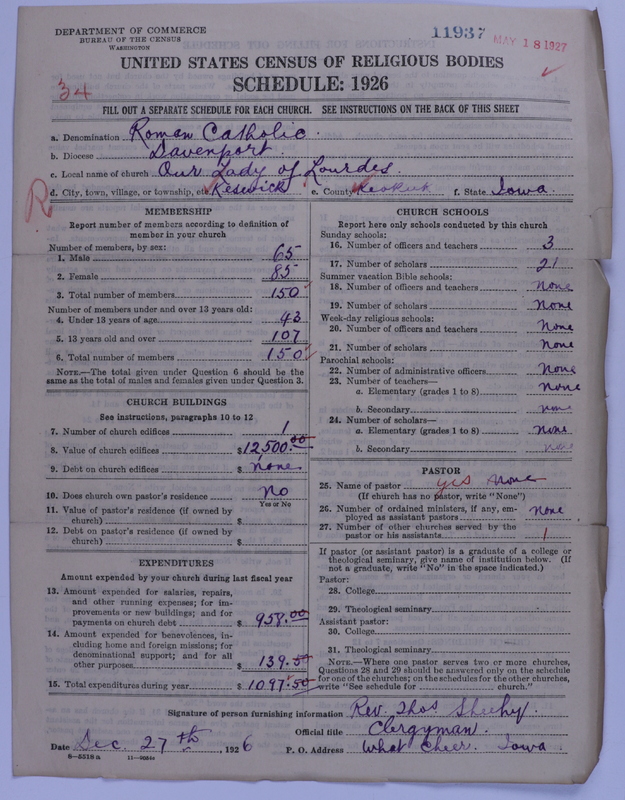 DEPARTMENT OF COMMERCE
BUREAU OF THE CENSUS
WASHINGTON
11937
MAY 18 1927
UNITED STATES CENSUS OF RELIGIOUS BODIES
SCHEDULE: 1926
34
FILL OUT A SEPARATE SCHEDULE FOR EACH CHURCH. SEE INSTRUCTIONS ON THE BACK OF THIS SHEET
a. Denomination Roman Catholic.
b. Diocese Davenport.
c. Local name of church Our Lady of Lourdes.
d. City, town, village, or township, etc. Keswick e. County Keokuk f. State Iowa.
R
MEMBERSHIP
Report number of members according to definition of
member in your church
Number of members, by sex:
1. Male 65
2. Female 85
3. Total number of members 150
Number of members under and over 13 years old:
4. Under 13 years of age 43
5. 13 years old and over 107
6. Total number of members 150
NOTE.—The total given under Question 6 should be the
same as the total of males and females given under Question 3.
CHURCH BUILDINGS
See instructions, paragraphs 10 to 12
7. Number of church edifices 1
8. Value of church edifices $12,500.00
9. Debt on church edifices $ none
10. Does church own pastor's residence No
Yes or No
11. Value of pastor's residence (if owned by
church) $
12. Debt on pastor's residence (if owned by
church) $
EXPENDITURES
Amount expended by your church during last fiscal year
13. Amount expended for salaries, repairs,
and other running expenses; for im-
provements or new buildings; and for
payments on church debt $ 958.00
14. Amount expended for benevolences, in-
cluding home and foreign missions; for
denominational support; and for all
other purposes $ 139.50
15. Total expenditures during year $ 1097.50
CHURCH SCHOOLS
Report here only schools conducted by this church
Sunday schools:
16. Number of officers and teachers 3
17. Number of scholars 21
Summer vacation Bible schools:
18. Number of officers and teachers None
19. Number of scholars None
Week-day religious schools:
20. Number of officers and teachers None
21. Number of scholars None
Parochial schools:
22. Number of administrative officers None
23. Number of teachers—
a. Elementary (grades 1 to 8) None
b. Secondary None
24. Number of scholars—
a. Elementary (grades 1 to 8) None
b. Secondary None
PASTOR
25. Name of pastor yes None
(If church has no pastor, write "None")
26. Number of ordained ministers, if any, em-
ployed as assistant pastors None
27. Number of other churches served by the
pastor or his assistants 1
If pastor (or assistant pastor) is a graduate of a college or
theological seminary, give name of institution below. (If
not a graduate, write "No" in the space indicated.)
Pastor:
28. College
29. Theological seminary
Assistant pastor:
30. College
31. Theological seminary
NOTE.—Where one pastor serves two or more churches,
Questions 28 and 29 should be answered only on the schedule
for one of the churches; on the schedules for the other churches,
write "See schedule for church."
Signature of person furnishing information Rev. Thos Sheehy.
Official title Clergyman.
Date Dec. 27th, 1926 P. O. Address What Cheer. Iowa.
8—5518 a